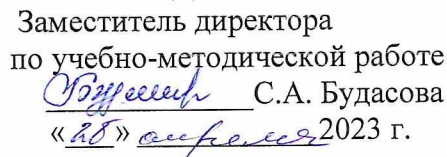 Заместитель директора
по учебно-методической работе
С.А. Будасова
«28» апреля 2023 г.